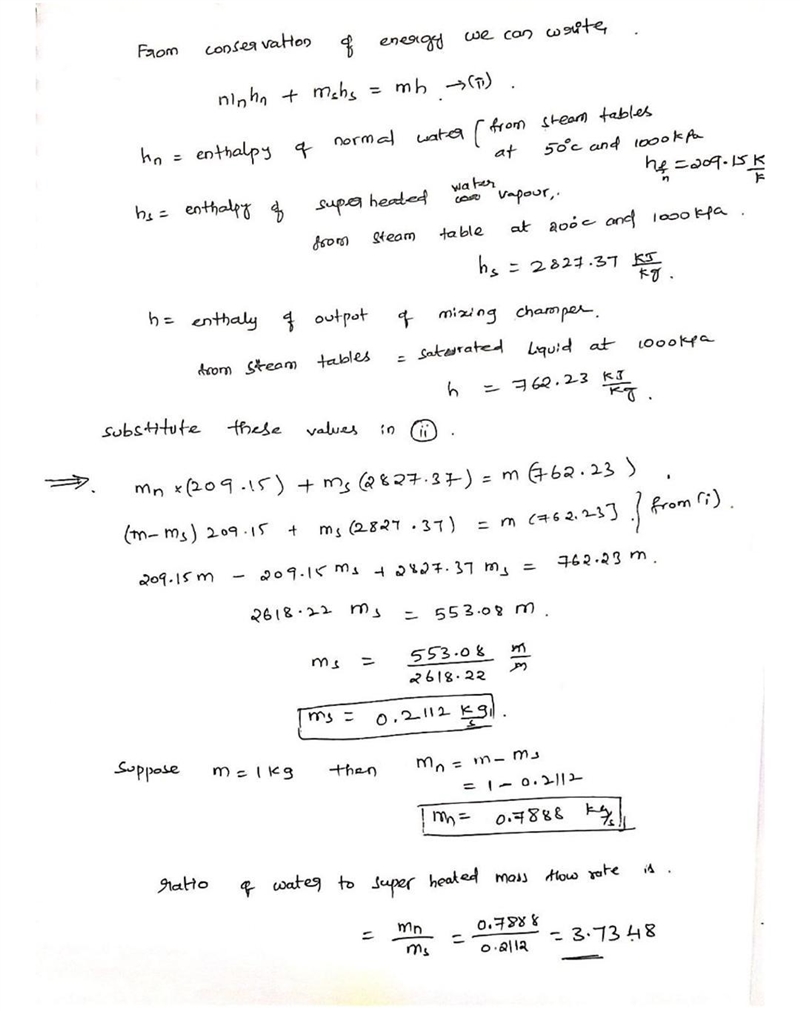 From conservation of energy we can write,
mnhn + mshs = mh. →(ii).
hn = enthalpy of normal water (from steam tables
at 50°c and 1000kPa
hfn = 209.15 K
hs = enthalpy of super heated water vapour,.
from steam table at 200°c and 1000 kpa.
hs = 2827.37 KJ/kg.
h = enthaly of output of mixing chamber.
from steam tables = saturated liquid at 1000kpa
h = 762.23 KJ/Kg.
substitute these values in (ii).
⟹. mn × (209.15) + ms (2827.37) = m (762.23)
(m-ms) 209.15 + ms (2827.37) = m (762.23] } from (i).
209.15m - 209.15 ms + 2827.37 ms = 762.23 m.
2618.22 ms = 553.08 m.
ms = 553.08/2618.22 m/m
ms = 0.2112 kg/s.
Suppose m = 1 kg then mn = m - ms
= 1 - 0.2112
mn = 0.7888 kg/s
ratio of water to super heated mass flow rate is.
= mn/ms = 0.7888/0.2112 = 3.7348